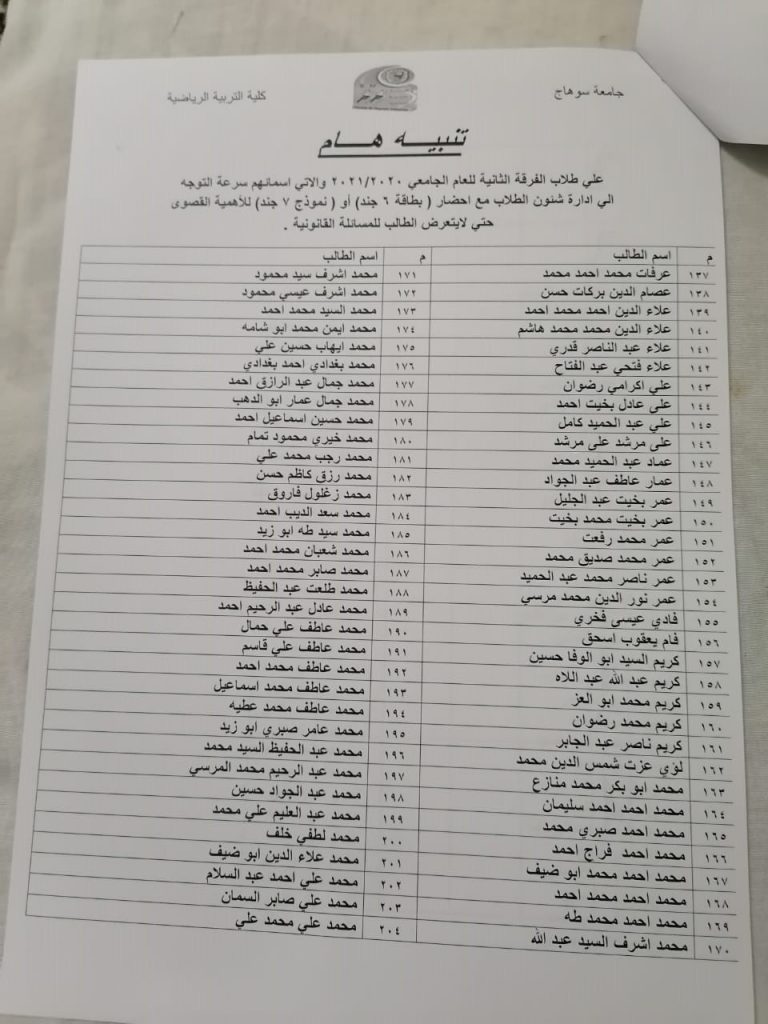 جامعة سوهاج
كلية التربية الرياضية
تنبيه هام
علي طلاب الفرقة الثانية للعام الجامعي ٢٠٢١/٢٠٢٠ والاتي اسمائهم سرعة التوجه
الي ادارة شئون الطلاب مع احضار ( بطاقة ٦ جند) أو ( نموذج ٧ جند) للأهمية القصوى
حتي لايتعرض الطالب للمسائلة القانونية .
م اسم الطالب م اسم الطالب
١٣٧ عرفات محمد احمد محمد ١٧١ محمد اشرف سيد محمود
١٣٨ عصام الدين بركات حسن ١٧٢ محمد اشرف عيسي محمود
١٣٩ علاء الدين احمد محمد احمد ١٧٣ محمد السيد محمد احمد
١٤٠ علاء الدين محمد محمد هاشم ١٧٤ محمد ايمن محمد ابو شامه
١٤١ علاء عبد الناصر قدري ١٧٥ محمد ايهاب حسين علي
١٤٢ علاء فتحي عبد الفتاح ١٧٦ محمد بغدادي احمد بغدادي
١٤٣ علي اكرامي رضوان ١٧٧ محمد جمال عبد الرازق احمد
١٤٤ على عادل بخيت احمد ١٧٨ محمد جمال عمار ابو الدهب
١٤٥ علي عبد الحميد كامل ١٧٩ محمد حسين اسماعيل احمد
١٤٦ على مرشد على مرشد ١٨٠ محمد خيري محمود تمام
١٤٧ عماد عبد الحميد محمد ١٨١ محمد رجب محمد علي
١٤٨ عمار عاطف عبد الجواد ١٨٢ محمد رزق كاظم حسن
١٤٩ عمر بخيت عبد الجليل ١٨٣ محمد زغلول فاروق
١٥٠ عمر بخيت محمد بخيت ١٨٤ محمد سعد الديب احمد
١٥١ عمر محمد رفعت ١٨٥ محمد سيد طه ابو زيد
١٥٢ عمر محمد صديق محمد ١٨٦ محمد شعبان محمد احمد
١٥٣ عمر ناصر محمد عبد الحميد ١٨٧ محمد صابر محمد احمد
١٥٤ عمر نور الدين محمد مرسي ١٨٨ محمد طلعت عبد الحفيظ
١٥٥ فادي عيسى فخري ١٨٩ محمد عادل عبد الرحيم احمد
١٥٦ فام يعقوب اسحق ١٩٠ محمد عاطف علي حمال
١٥٧ كريم السيد ابو الوفا حسين ١٩١ محمد عاطف علي قاسم
١٥٨ كريم عبد الله عبد اللاه ١٩٢ محمد عاطف محمد احمد
١٥٩ كريم محمد ابو العز ١٩٣ محمد عاطف محمد اسماعيل
١٦٠ كريم محمد رضوان ١٩٤ محمد عاطف محمد عطيه
١٦١ كريم ناصر عبد الجابر ١٩٥ محمد عامر صبري ابو زيد
١٦٢ لؤي عزت شمس الدين محمد ١٩٦ محمد عبد الحفيظ السيد محمد
١٦٣ محمد ابو بكر محمد منازع ١٩٧ محمد عبد الرحيم محمد المرسي
١٦٤ محمد احمد احمد سليمان ١٩٨ محمد عبد الجواد حسين
١٦٥ محمد احمد صبري محمد ١٩٩ محمد عبد العليم علي محمد
١٦٦ محمد احمد فراج احمد ٢٠٠ محمد لطفي خلف
١٦٧ محمد احمد محمد ابو ضيف ٢٠١ محمد علاء الدين ابو ضيف
١٦٨ محمد احمد محمد احمد ٢٠٢ محمد علي احمد عبد السلام
١٦٩ محمد احمد محمد طه ٢٠٣ محمد علي صابر السمان
١٧٠ محمد اشرف السيد عبد الله ٢٠٤ محمد علي محمد علي